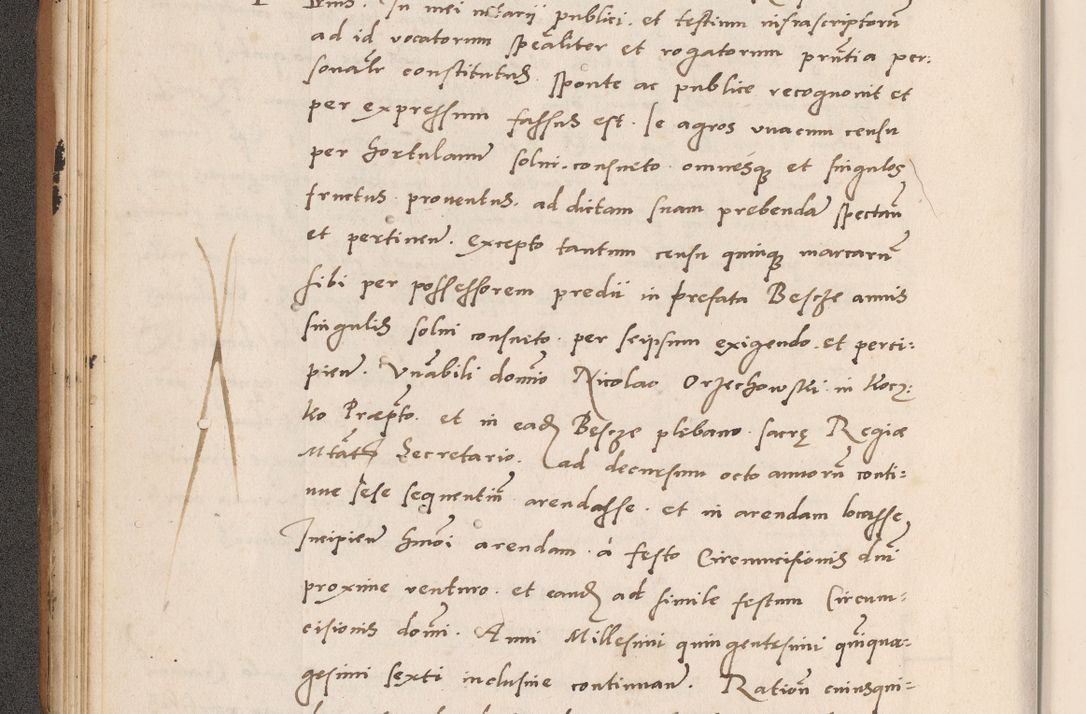 In mei notarij publici. et testium infrascriptorũ
ad id vocatorum speãliter et rogatorum pñtia per:
sonalr constitutus. sponte ac publice recognouit et
per expressum fassus est. se agros vnacum censu
per hortulanũ solui. consueto. omnesq et singulos
fructus prouentus. ad dictam suam prebendã spectañ
et pertineñ. excepto tantum censu quinq marcarũ
sibi per possessorem predii in prefata Besche annis
singulis solui consueto. per seipsum exigendo. et perci:
pieñ. Vnãbili domĩo Nicolao Orzechowski. in Kocz:
ko Præpto. et in eadẽ Besche plebano. sacrę Regiæ
Mtãts Secretario. ad decursum octo annorũ conti:
nue sese sequentiũ. arendasse. et in arendam locasse.
Incipieñ hmõi arendam. á festo Circumcisionis dñi
proxime venturo. et eandẽ ad simile festum Circum:
cisionis domĩ. Anni Millesimi quingentesimi quĩqua:
gesimi sexti inclusiue continuañ. Rationẽ cuiusqui: